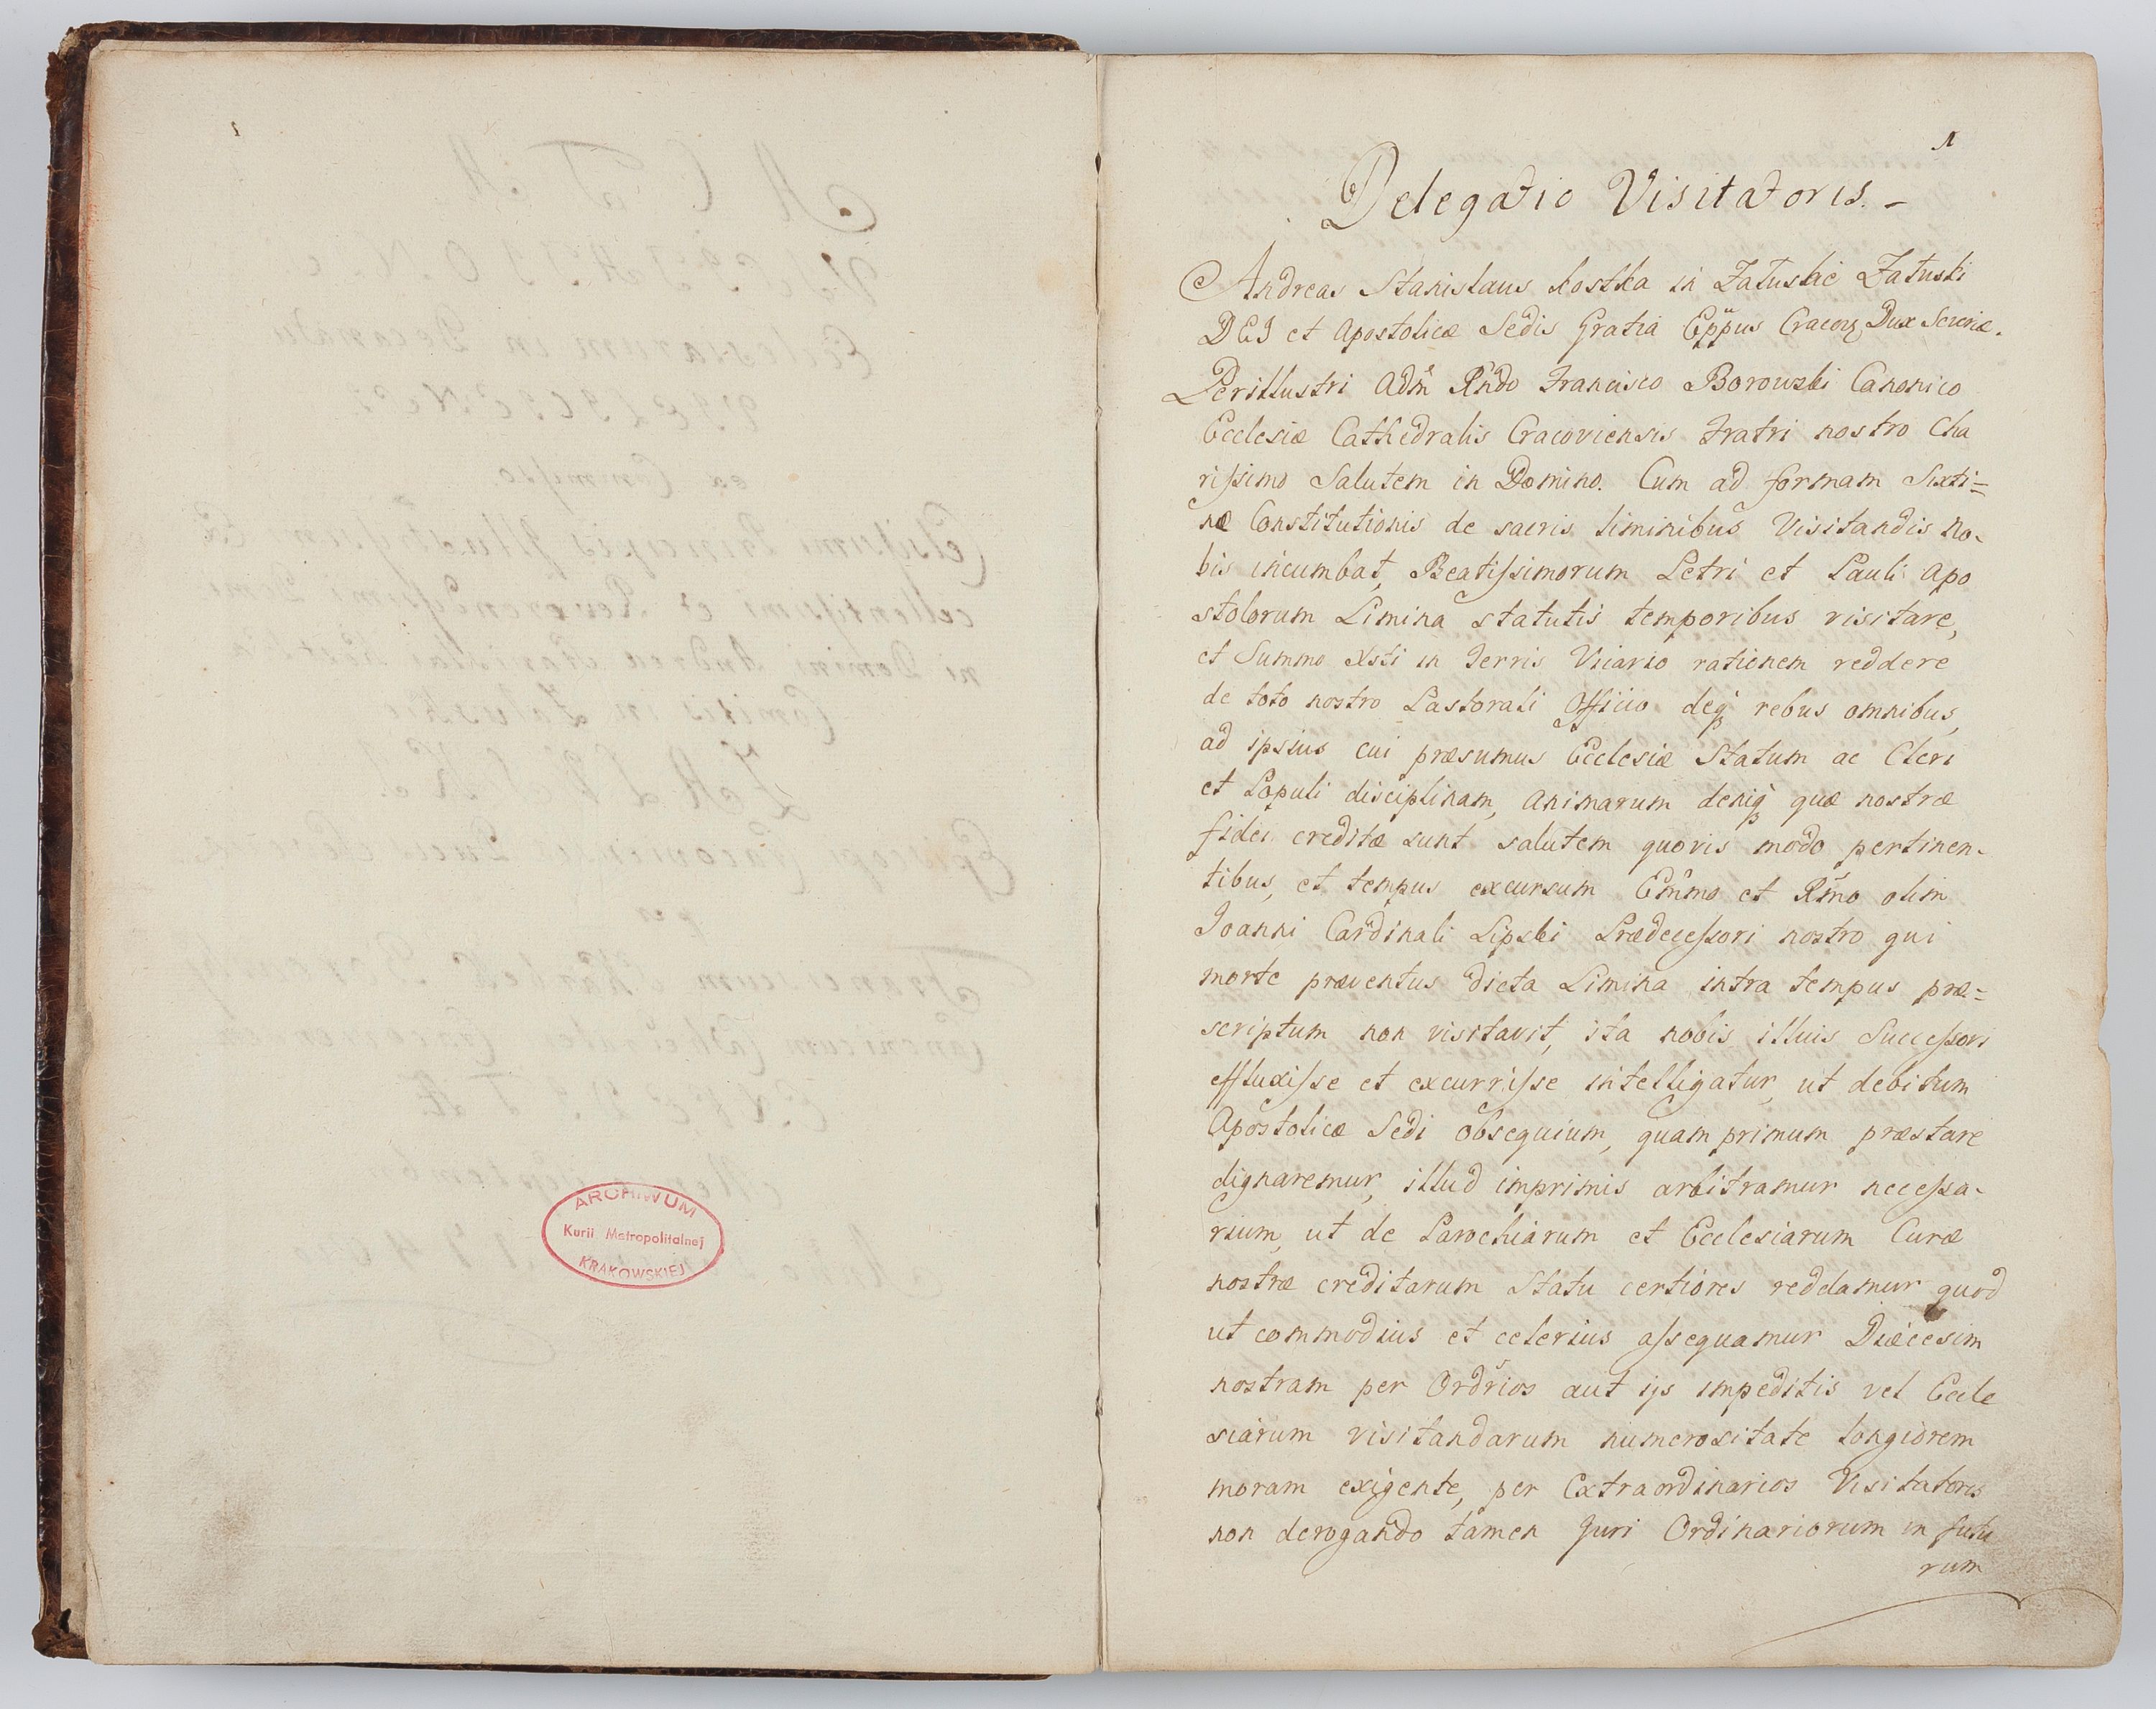 ARCHIWUM
Kurii Metropolitalnej
KRAKOWSKIEJ
1
Delegatio Visitatoris. -
Andreas Stanislaus Kostka in Załuskie Załuski
DEI et Apostolicæ Sedis Gratia Eppus Cracov Dux Severiæ.
Perillustri Adm Rndo Francisco Borowski Canonico
Ecclesiæ Cathedralis Cracoviensis Fratri nostro Cha
rissimo Salutem in Domino. Cum ad formam Sixti=
næ Constitutionis de sacris liminibus Visitandis no-
bis incumbat, Beatissimorum Petri et Pauli Apo
stolorum Limina statutis temporibus visitare,
et Summo Xsti in Terris Vicario rationem reddere
de toto nostro Pastorali Officio deq rebus omnibus,
ad ipsius cui præsumus Ecclesiæ Statum ac Cleri
et Populi disciplinam, Animarum deniq quæ nostræ
fidei creditæ sunt salutem quovis modo pertinen-
tibus, et tempus excursum Emmo et Rmo olim
Joanni Cardinali Lipski Prædecessori nostro qui
morte præventus dicta Limina intra tempus præ=
scriptum non visitavit, ita nobis illuis Successori
effluxisse et excurrisse intelligatur, ut debitum
Apostolicæ Sedi obsequium, quam primum præstare
dignaremur, illud imprimis arbitramur necessa-
rium, ut de Parochiarum et Ecclesiarum Curæ
nostræ creditarum Statu certiores reddamur quod
ut commodius et celerius assequamur Diæcesim
nostram per Ordrios aut ijs impeditis vel Eccle
siarum visitandarum numerositate longiorem
moram exigente, per Extraordinarios Visitatores
non derogando tamen Juri Ordinariorum in futu
rum